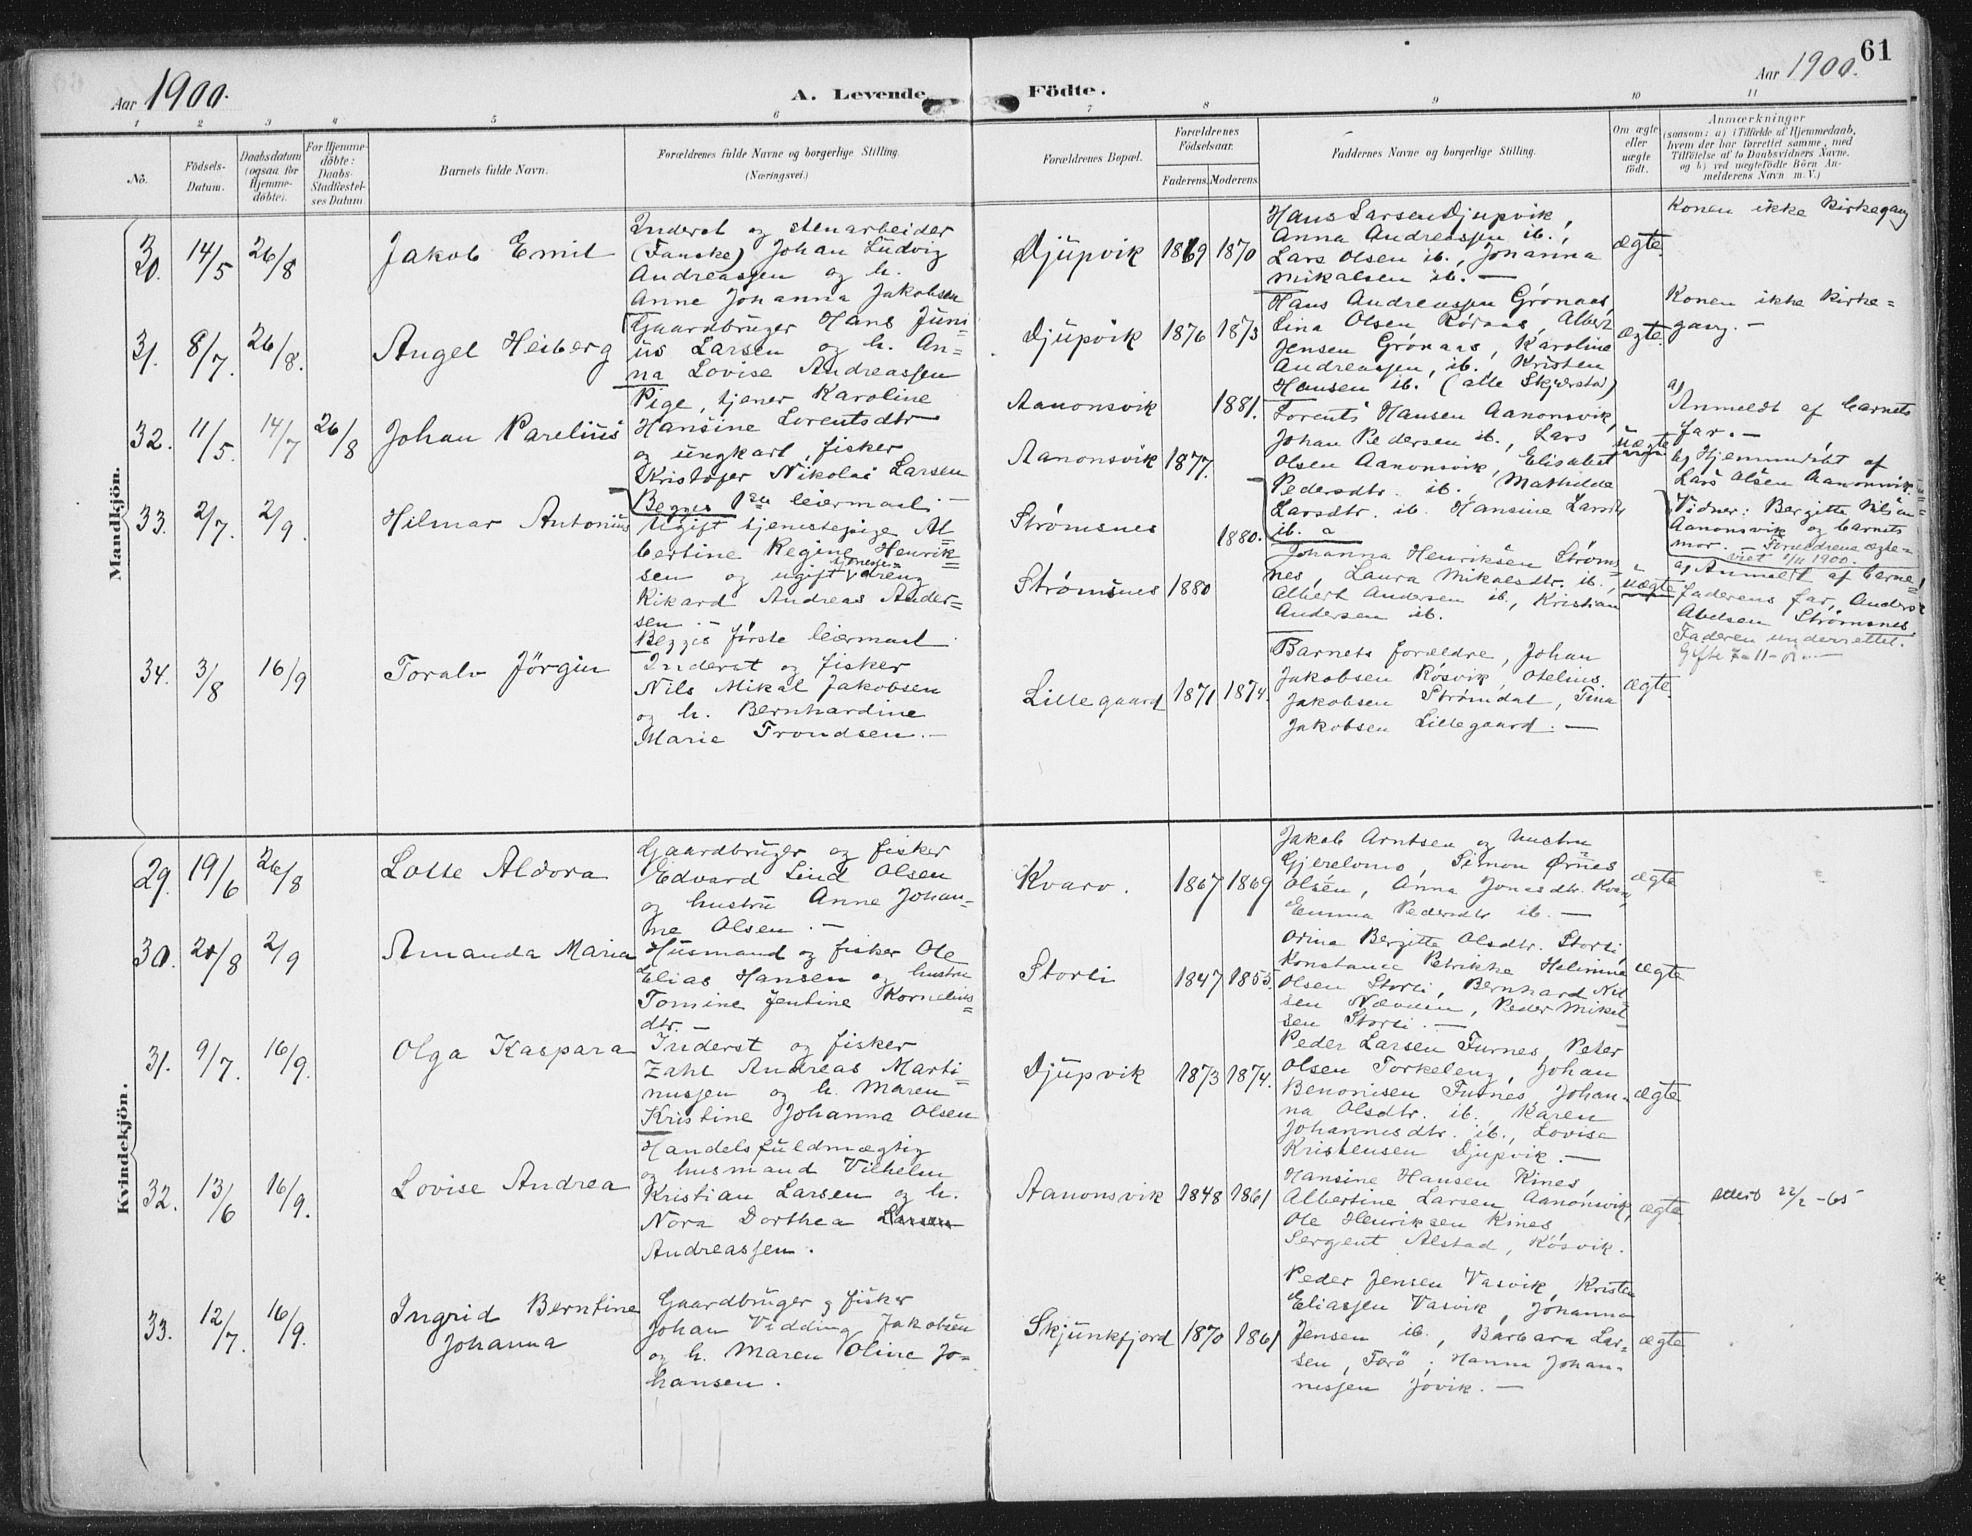 61
Aar 1900.
A. Levende Födte.
Aar 1900.
1 2 3 4 5 6 7 8 9 10 11
No.
Födsels-
Datum.
Daabsdatum
(ogsaa for
Hjemme-
döbte).
For Hjemme-
döbte:
Daabs-
Stadfæstel-
ses Datum
Barnets fulde Navn.
Forældrenes fulde Navne og borgerlige Stilling.
(Næringsvei.)
Forældrenes Bopæl.
Forældrenes
Födselsaar.
Faderens. Moderens.
Faddernes Navne og borgerlige Stilling.
Om ægte
eller
uægte
födt.
Anmærkninger
(saasom: a) i Tilfælde af Hjemmedaab,
hvem der har forrettet samme, med
Tilföielse af to Daabsvidners Navne.
og b) ved uægtefödte Börn An-
melderens Navn m. V.)
Mandkjön.
30. 14/5 26/8
Jakob Emil
Inderst og stenarbeider
(Fauske) Johan Ludvig
Andreassen og h.
Anne Johanna Jakobsen
Djupvik 1869 1870
Hans Larsen Djupvik,
Anna Andreassen ib.,
Lars Olsen ib., Johanna
Mikalsen ib. —
ægte.
Konen ikke Kirkegang
31. 8/7. 26/8.
Angel Heiberg
Gaardbruger Hans Juni=
us Larsen og h. An=
na Lovise Andreassen
Djupvik 1876 1873
Hans Andreassen Grønaas,
Lina Olsen Røraas, Albert
Jensen Grønaas, Karoline
Andreassen, ib. Kristen
Hansen ib. (alle Skjerstad)
ægte.
Konen ikke Kirke=
gang. —
32. 11/5. 14/7 26/8
Johan Parelius
Pige, tjener Karoline
Hansine Lorentsdtr
og ungkarl, fisker
Kristofer Nikolai Larsen
Begges 1ste leiermaal. —
Aanonsvik 1881.
Aanonsvik 1877.
Lorents Hansen Aanonsvik,
Johan Pedersen ib., Lars
Olsen Aanonsvik, Elisabet
Pedersdtr. ib., Mathilde
Larsdtr. ib. Hansine Larsdtr
ib.
uægte
a)
Anmeldt af barnets
far. —
b) Hjemmedøbt af
Lars Olsen Aanonsvik.
Vidner: Bergitte Nilsen
Aanonsvik og barnets
mor. — Forældrene ægte=
viet 1/11 1900.
33. 2/7. 2/9.
Hilmar Antonius
Ugift tjenestepige Al=
bertine Regine Henrik=
sen og ugift tjeneste=
dreng
Rikard Andreas Ander=
sen. —
Begges første leiermaal.
Strømsnes 1880.
Strømsnes 1880
Johanna Henriksen Strøms=
nes, Laura Mikalsdtr. ib.,
Albert Andersen ib., Kristian
Andersen ib.
uægte
a) Anmeldt af barne=
faderens far, Anders
Abelsen Strømsnes
Faderen underrettet.
34. 3/8 16/9
Toralv Jörgin
Inderst og fisker
Nils Mikal Jakobsen
og h. Bernhardine
Marie Trondsen. —
Lillegaard 1871 1874.
Barnets forældre, Johan
Jakobsen Røsvik, Otelius
Jakobsen Strømdal, Tina
Jakobsen Lillegaard. —
ægte.
Kvindekjön.
29. 19/6 26/8
Lotte Aldora
Gaardbruger og fisker
Edvard Lind Olsen
og hustru Anne Johan=
ne Olsen. —
Kvarv. 1867 1869
Jakob Arntsen og hustru
Gjerelvmo, Simon Ørnes
Olsen, Anna Jonasdtr. Kvarv,
Emma Pedersdtr ib. —
ægte
30. 21/8 2/9
Amanda Maria
Husmand og fisker Ole
Elias Hansen og hustru
Tomine Jentine Kornelius=
dtr. —
Storli 1847 1855.
Orina Bergitte Olsdtr. Storli,
Konstance Petrikke Helmine
Olsen Storli, Bernhard Nil
sen Nævnin, Peder Mikal
sen Storli. —
ægte
31. 9/7. 16/9.
Olga Kaspara
Inderst og fisker
Zahl Andreas Marti=
nussen og h. Maren
Kristine Johanna Olsen
Djupvik 1873 1874.
Peder Larsen Furnes, Peter
Olsen Torkeleng, Johan
Benonisen Furnes, Johan=
na Olsdtr. ib. Karen
Johannesdtr. ib., Lovise
Kristensen Djupvik. —
ægte
32. 13/6 16/9.
Lovise Andrea
Handelsfuldmægtig
og husmand Vilhelm
Kristian Larsen og h.
Nora Dorthea Larsen
Andreassen.
Aanonsvik 1848 1861
Hansine Hansen Kines,
Albertine Larsen Aanonsvik,
Ole Henriksen Kines,
Sergent Alstad, Røsvik.
ægte
22/2 -65
33. 12/7. 16/9.
Ingrid Berntine
Johanna
Gaardbruger og fisker
Johan Vidding Jakobsen
og h. Maren Oline Jo=
hansen.
Skjunkfjord 1870 1861
Peder Jensen Vasvik, Kristen
Eliassen Vasvik, Johanna
Jensen ib., Barbara Lar=
sen, Farö; Hanna Johan=
nesjen Jövik. —
ægte